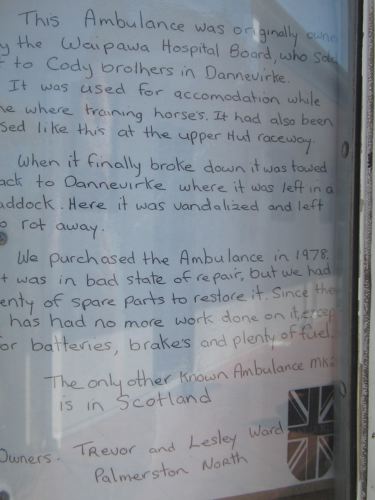 This Ambulance was originally owne
y the Waipawa Hospital Board, who sold
to Cody brothers in Dannevirke.
It was used for accomodation while
ne where training horse's. It had also been
sed like this at the upper Hut raceway.
When it finally broke down it was towed
ack to Dannevirke where it was left in a
addock. Here it was vandalized and left
o rot away.
We purchased the Ambulance in 1978.
t was in bad state of repair, but we had
enty of spare parts to restore it. Since the
has had no more work done on it, excep
or batteries, brake's and plenty of fuel.
The only other known Ambulance MK2
is in Scotland
Owners. Trevor and Lesley Ward
Palmerston North